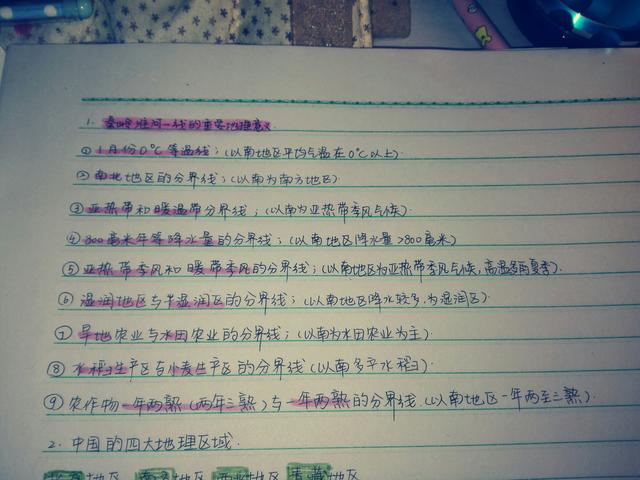 1. 秦岭淮河一线的重要地理意义
① 1月份0℃等温线；(以南地区平均气温在0℃以上).
② 南北地区的分界线；(以南为南方地区)
③ 亚热带和暖温带分界线；(以南为亚热带季风气候).
④ 800毫米年等降水量的分界线；(以南地区降水量>800毫米)
⑤ 亚热带季风和暖带季风的分界线；(以南地区为亚热带季风气候,高温多雨夏季).
⑥ 湿润地区与半湿润区的分界线；(以南地区降水较多,为湿润区).
⑦ 旱地农业与水田农业的分界线；(以南为水田农业为主).
⑧ 水稻生产区与小麦生产区的分界线(以南多平水稻).
⑨ 农作物一年两熟(两年三熟)与一年两熟的分界线.(以南地区一年两至三熟).
2. 中国的四大地理区域.
北方地区 南方地区 西北地区 青藏地区